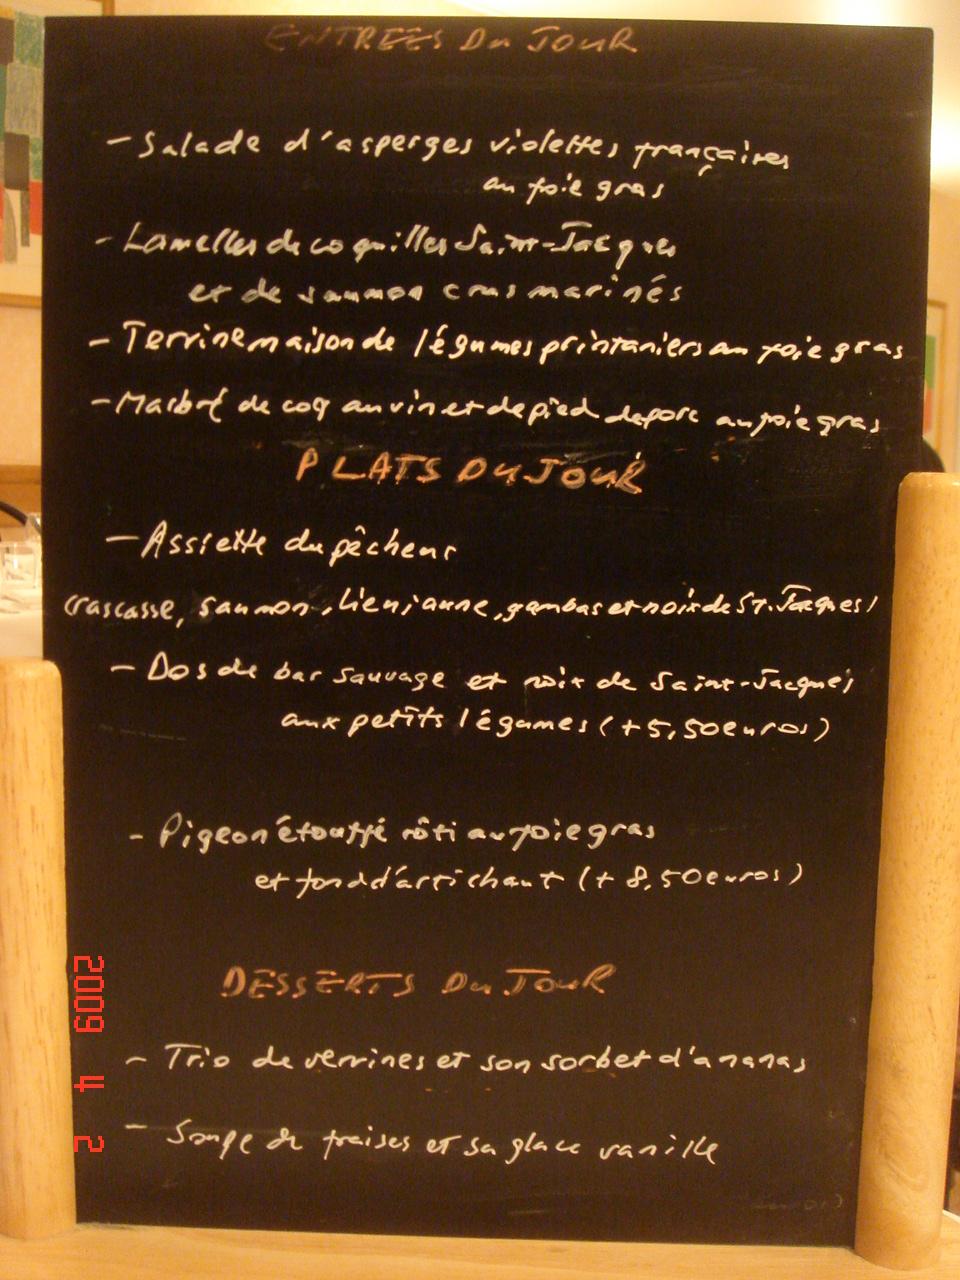 ENTREES DU JOUR
- Salade d'asperges violettes françaises
au foie gras
- Lamelles de coquilles Saint-Jacques
et de saumon crus marinés
- Terrine maison de légumes printaniers au foie gras
- Marbré de coq au vin et de pied de porc au foie gras
PLATS DU JOUR
- Assiette du pêcheur
(rascasse, saumon, lieu jaune, gambas et noix de St. Jacques)
- Dos de bar sauvage et noix de Saint-Jacques
aux petits légumes (+5,50 euros)
- Pigeon étouffé rôti au foie gras
et fond d'artichaut (+ 8,50 euros)
DESSERTS DU JOUR
- Trio de verrines et son sorbet d'ananas
- Soupe de fraises et sa glace vanille
2009 4 2